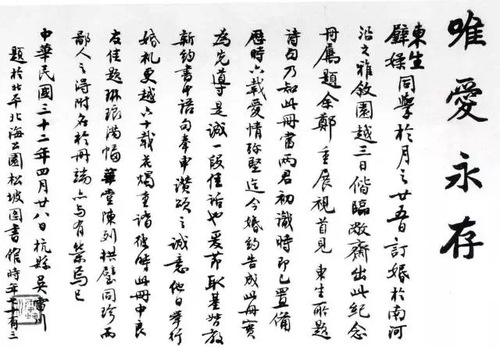 唯愛永存
東生璧 同學於月之廿五日訂婚於南河
沿之雅敘園越三日偕臨敝齋出此紀念
冊屬題余鄭重展視首見東生所題
詩句乃知此冊當兩君初識時即已置備
歷時六載愛情彌堅迄今婚約告成此冊實
為先導是誠一段佳話也爰節取基督教
新約書中語句奉申讚頌之誠意他日舉行
婚礼更越六十載花燭重諧彼時此冊中良
友佳題琳琅滿幅華堂陳列拱璧同珍而
鄙人之得附名於冊端亦與有榮焉已
中華民國三十二年四月廿八日杭縣吳雷川
題於北平北海公園松坡圖書館時年七十有三